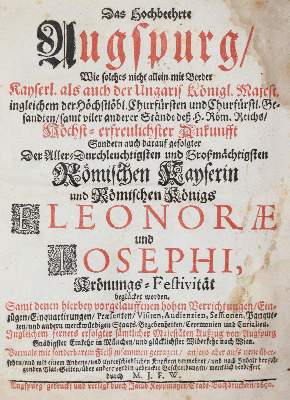 Das Hochbeehrte
Augspurg/
Wie solches nicht allein mit Beeder
Kayserl. als auch der Ungaris. Königl. Majest.
ingleichem der Höchstlöbl. Churfürsten und Churfürstl. Ge-
sandten/ samt viler anderer Stände deß H. Röm. Reichs/
Höchst-erfreulichster Ankunfft
Sondern auch darauf gefolgter
Der Aller-Durchleuchtigsten und Großmächtigsten
Römischen Kayserin
und Römischen Königs
ELEONORÆ
und
JOSEPHI,
Krönungs-Festivität
beglücket worden,
Samt denen hierbey vorgelauffenen hohen Verrichtungen/ Ein-
zügen/ Einquartirungen/ Præsenten/ Visiten, Audienzien, Sessionen, Banque-
ten/ und andern merckwürdigen Staats-Begebenheiten/ Ceremonien und Curialien.
Ingleichem ferners erfolgter sämtlicher Majestäten Aufzug von Augspurg
Gnädigster Einkehr in München/ und glücklichster Widerkehr nach Wien.
Vormals mit sonderbarem Fleiß zusammen getragen/ anjetzo aber aufs neue über-
sehen/ und mit einem Anhang/ und unterschiedlichen Kupffern vermehret/
durch M. J. F. W.
Augspurg/ gedruckt und verlegt durch Jacob Koppmayer/ Stadt-Buchdrucker/ 1690.